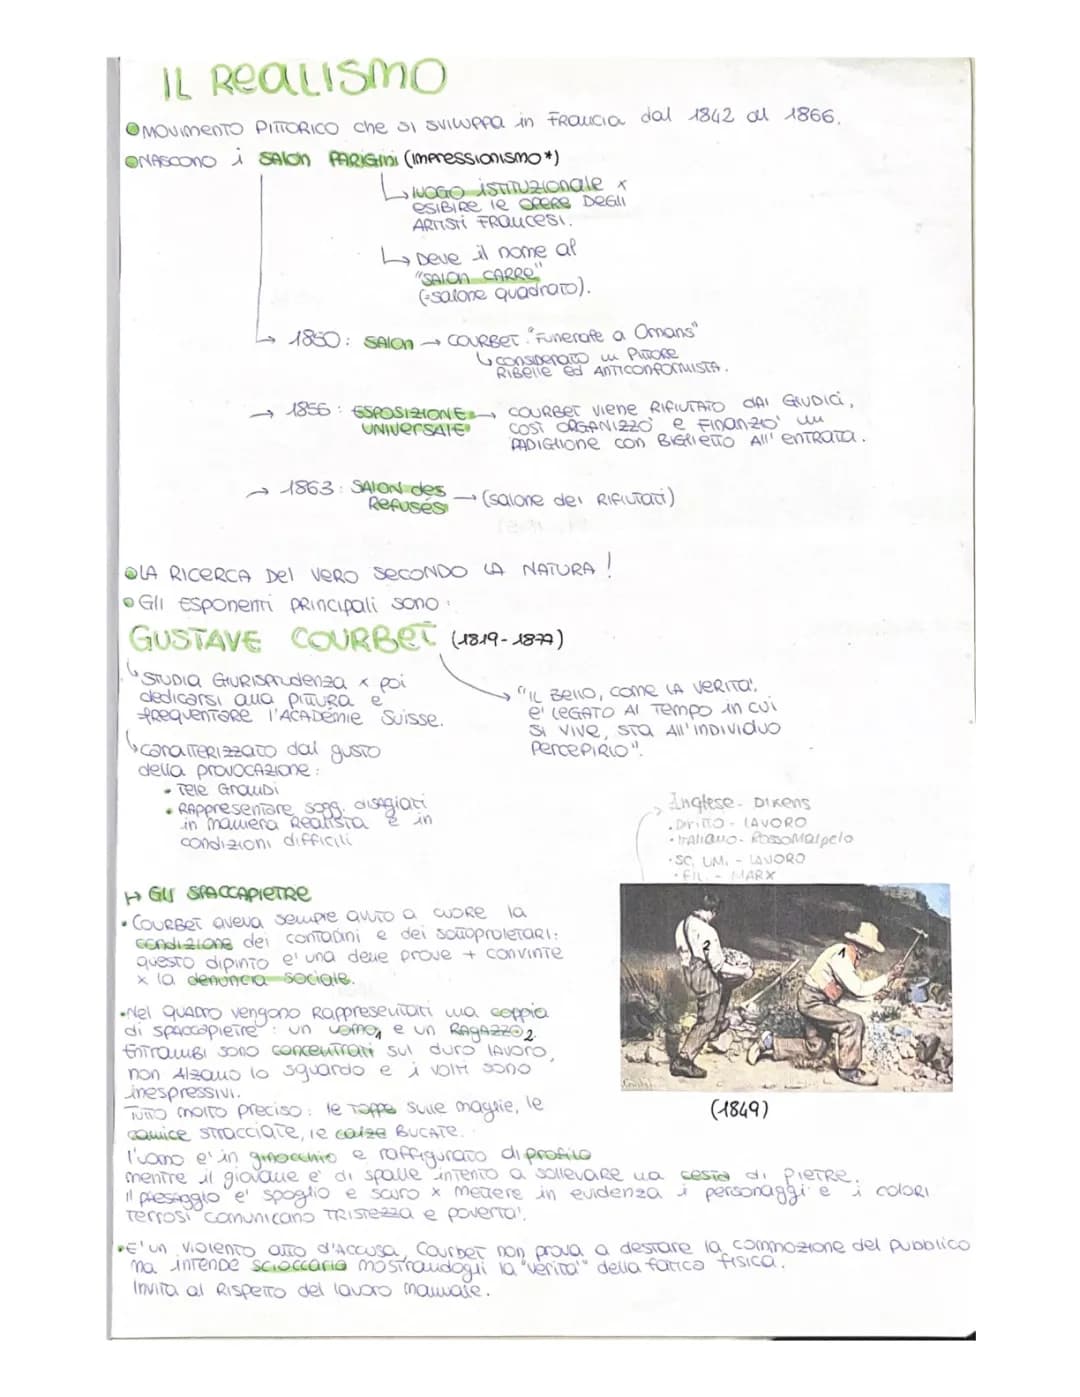 IL REALISMO
MOVIMENTO PITTORICO che si SVILUPPA in FRANCIA dal 1842 al 1866.
NASCONO i SALON PARIGINI (IMPRESSIONISMO*)
LUOGO ISTITUZIONALE x
ESIBIRE le OPERE DEGLI
ARTISTI FRANCESI.
DEVE il nome al
"SALON CARRE"
(=salone quadrato).
1850: SALON → COURBET "Funerale a Ornans"
CONSIDERATO un PITTORE
RIBELLE ED ANTICONFORMISTA.
→ 1855: ESPOSIZIONE → COURBET VIENE RIFIUTATO DAI GIUDICI,
UNIVERSALE COSÌ ORGANIZZO' e FINANZIO' un
PADIGLIONE CON BIGLIETTO All'ENTRATA.
→ 1863: SALON des → (salone dei RIFIUTATI)
REFUSÉS
LA RICERCA DEL VERO SECONDO LA NATURA!
GLI ESPONENTI PRINCIPALI SONO:
GUSTAVE COURBET (1819-1877)
STUDIA GIURISPRUDENZA x poi
dedicarsi alla PITTURA e
frequentare l'ACADÉMIE SUISSE.
"IL BELLO, COME LA VERITA',
e' LEGATO AL TEMPO in CUI
SI VIVE, STA All'INDIVIDUO
PERCEPIRLO".
CARATTERIZZATO dal gusto
della PROVOCAZIONE:
• TELE GRANDI
• RAPPRESENTARE SOGG. DISAGIATI
in MANIERA REALISTA e in
CONDIZIONI DIFFICILI
Inglese - DIKENS
• DIRITTO - LAVORO
• ITALIANO - ROSSO MALPELO
• SC. UM. - LAVORO
• FIL. - MARX
GLI SPACCAPIETRE
• COURBET aveva sempre avuto a CUORE la
CONDIZIONE dei CONTADINI e dei SOTTOPROLETARI:
questo dipinto e' una delle prove + CONVINTE
x la denuncia sociale.
• Nel QUADRO vengono RAPPRESENTATI una coppia
di SPACCAPIETRE: un uomo1 e un RAGAZZO2.
ENTRAMBI sono CONCENTRATI sul duro LAVORO,
non ALZANO lo sguardo e i VOLTI sono
inespressivi.
2
1
(1849)
TUTTO molto preciso: le TOPPE sulle maglie, le
camice STRACCIATE, le calze BUCATE.
l'uomo e' in ginocchio e raffigurato di profilo
mentre il giovane e' di spalle intento a sollevare una cesta di PIETRE.
il PAESAGGIO e' spoglio e scuro x METTERE in evidenza i personaggi e i COLORI
TERROSI comunicano TRISTEZZA e POVERTA'.
• E' un VIOLENTO ATTO d'ACCUSA, Courbet non prova a destare la commozione del pubblico
ma intende scioccarlo mostrandogli la "verita'" della fatica fisica.
INVITA al RISPETTO del lavoro manuale.